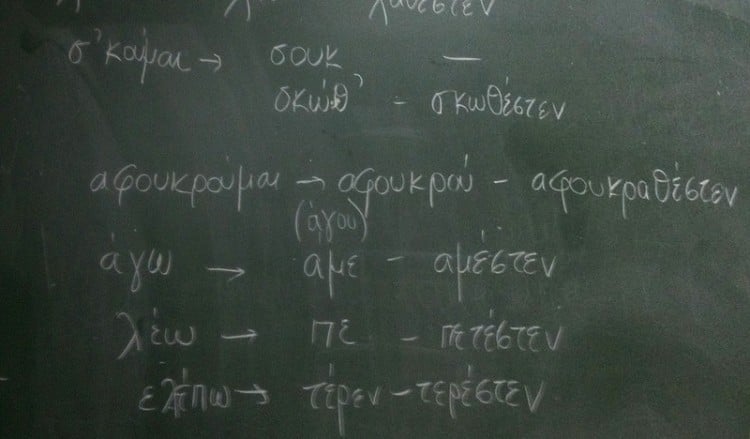 λαθέστεν
σ'κούμαι → σουκ —
σκώθ' - σκωθέστεν
αφουκρούμαι → αφουκρού - αφουκραθέστεν
(άγου)
άγω → αμε - αμέστεν
λέω → πε - πετέστεν
ελέπω → τέρεν - τερέστεν